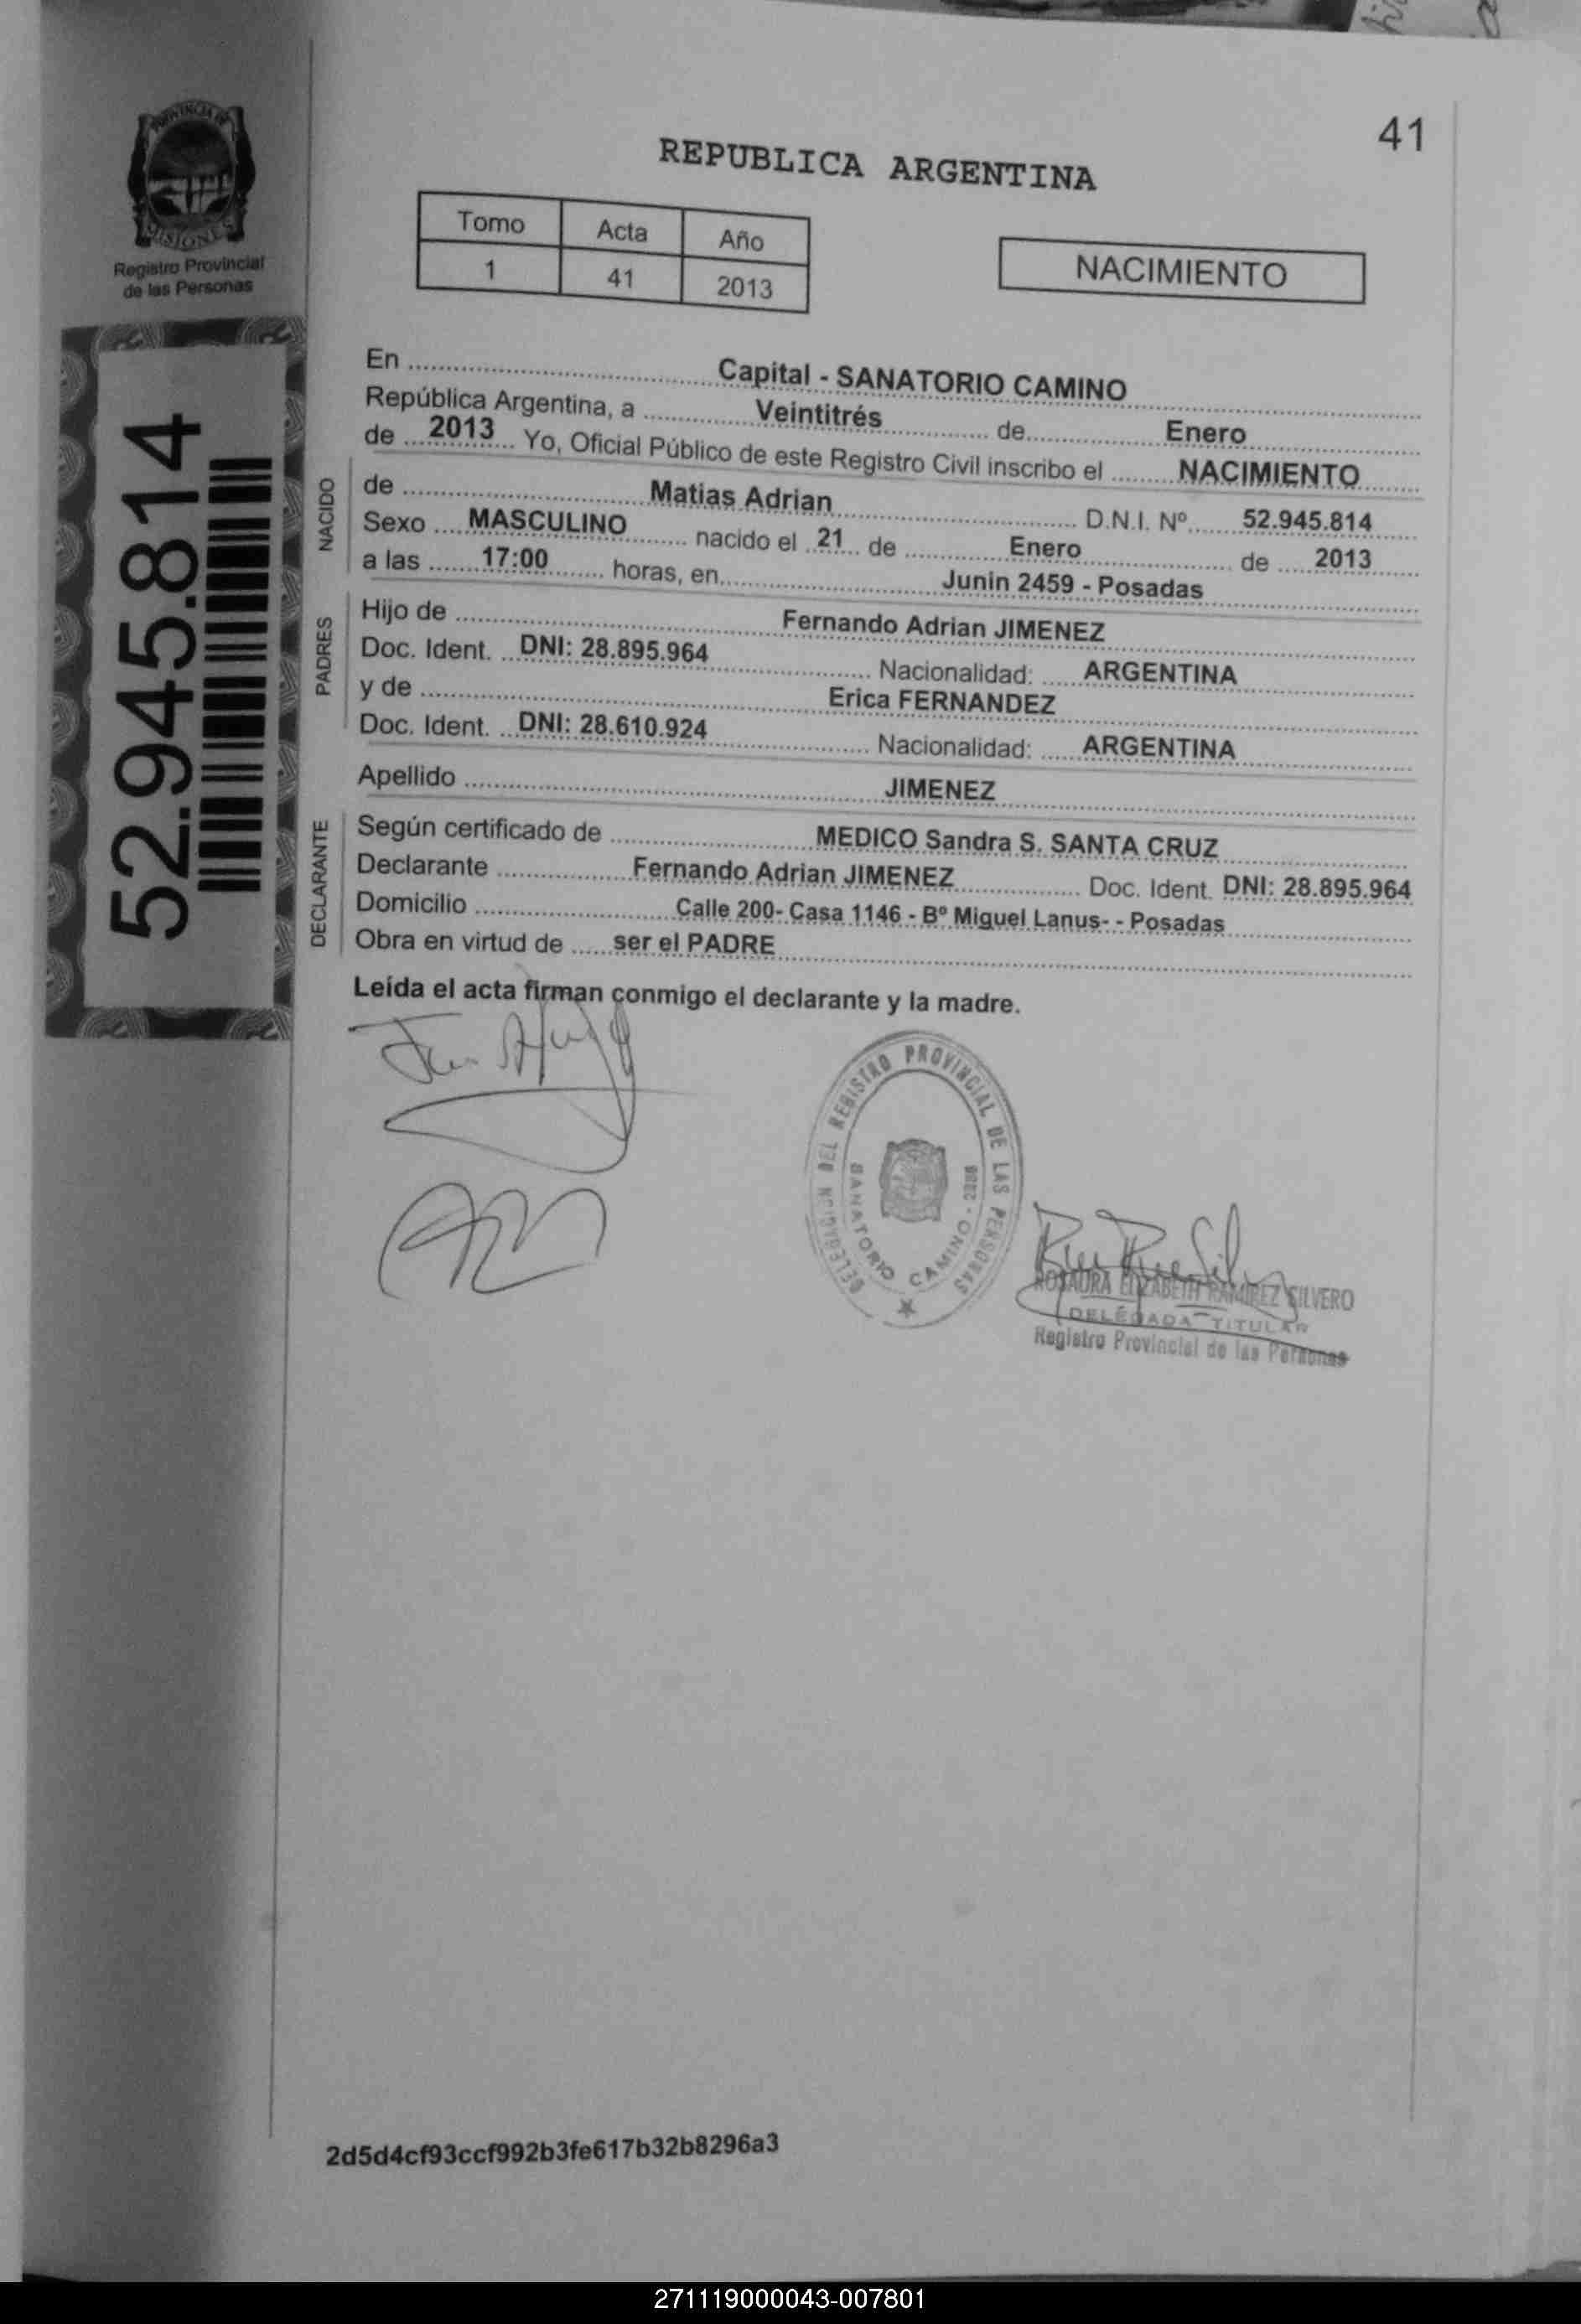 41
PROVINCIA DE
MISIONES
Registro Provincial
de las Personas
REPUBLICA ARGENTINA
Tomo Acta Año
1 41 2013
NACIMIENTO
52.945.814
En Capital - SANATORIO CAMINO
República Argentina, a Veintitrés de Enero
de 2013 Yo, Oficial Público de este Registro Civil inscribo el NACIMIENTO
NACIDO
de Matias Adrian D.N.I. Nº 52.945.814
Sexo MASCULINO nacido el 21 de Enero de 2013
a las 17:00 horas, en Junin 2459 - Posadas
PADRES
Hijo de Fernando Adrian JIMENEZ
Doc. Ident. DNI: 28.895.964 Nacionalidad: ARGENTINA
y de Erica FERNANDEZ
Doc. Ident. DNI: 28.610.924 Nacionalidad: ARGENTINA
Apellido JIMENEZ
DECLARANTE
Según certificado de MEDICO Sandra S. SANTA CRUZ
Declarante Fernando Adrian JIMENEZ Doc. Ident. DNI: 28.895.964
Domicilio Calle 200- Casa 1146 - Bº Miguel Lanus- - Posadas
Obra en virtud de ser el PADRE
Leída el acta firman conmigo el declarante y la madre.
DELEGACION DEL REGISTRO PROVINCIAL DE LAS PERSONAS
SANATORIO CAMINO - 2386
ROSAURA ELIZABETH RAMIREZ SILVERO
DELEGADA TITULAR
Registro Provincial de las Personas
2d5d4cf93ccf992b3fe617b32b8296a3
271119000043-007801